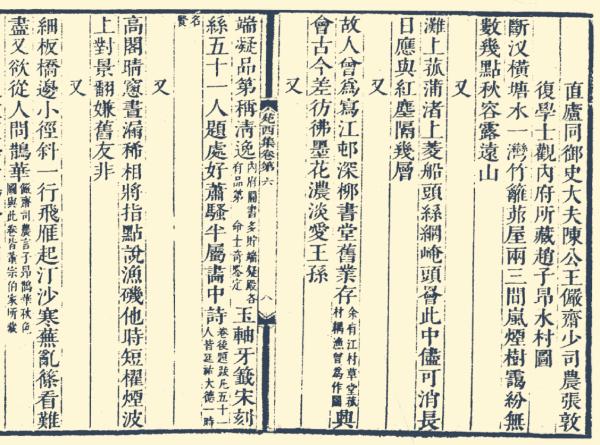 直廬同御史大夫陳公王儼齋少司農張敦
復學士觀內府所藏趙子昂水村圖
斷汊橫塘水一灣竹籬茆屋兩三間嵐煙樹靄紛無
數幾點秋容露遠山
又
灘上菰蒲渚上菱船頭絲網崦頭罾此中儘可消長
日應與紅塵隔幾層
又
故人曾爲寫江邨深柳書堂舊業存余有江村草堂菰村耦漁曾爲作圖與
會古今差彷彿墨花濃淡愛王孫
又
苑西集卷第六
八
端凝品第稱淸逸內府圖書多貯端凝殿各有品第命士奇鑒定玉軸牙籤宋刻
絲五十一人題處好蕭騷半屬畵中詩卷後題跋凡五十一人皆延祐大德一時
名賢
又
高閣晴窻晝漏稀相將指點說漁磯他時短櫂煙波
上對景翻嫌舊友非
又
細板橋邊小徑斜一行飛雁起汀沙寒蕪亂篠看難
盡又欲從人問鵲華儼齋司農言子昂鵲華秋色圖與此卷皆蕭宗伯家所藏